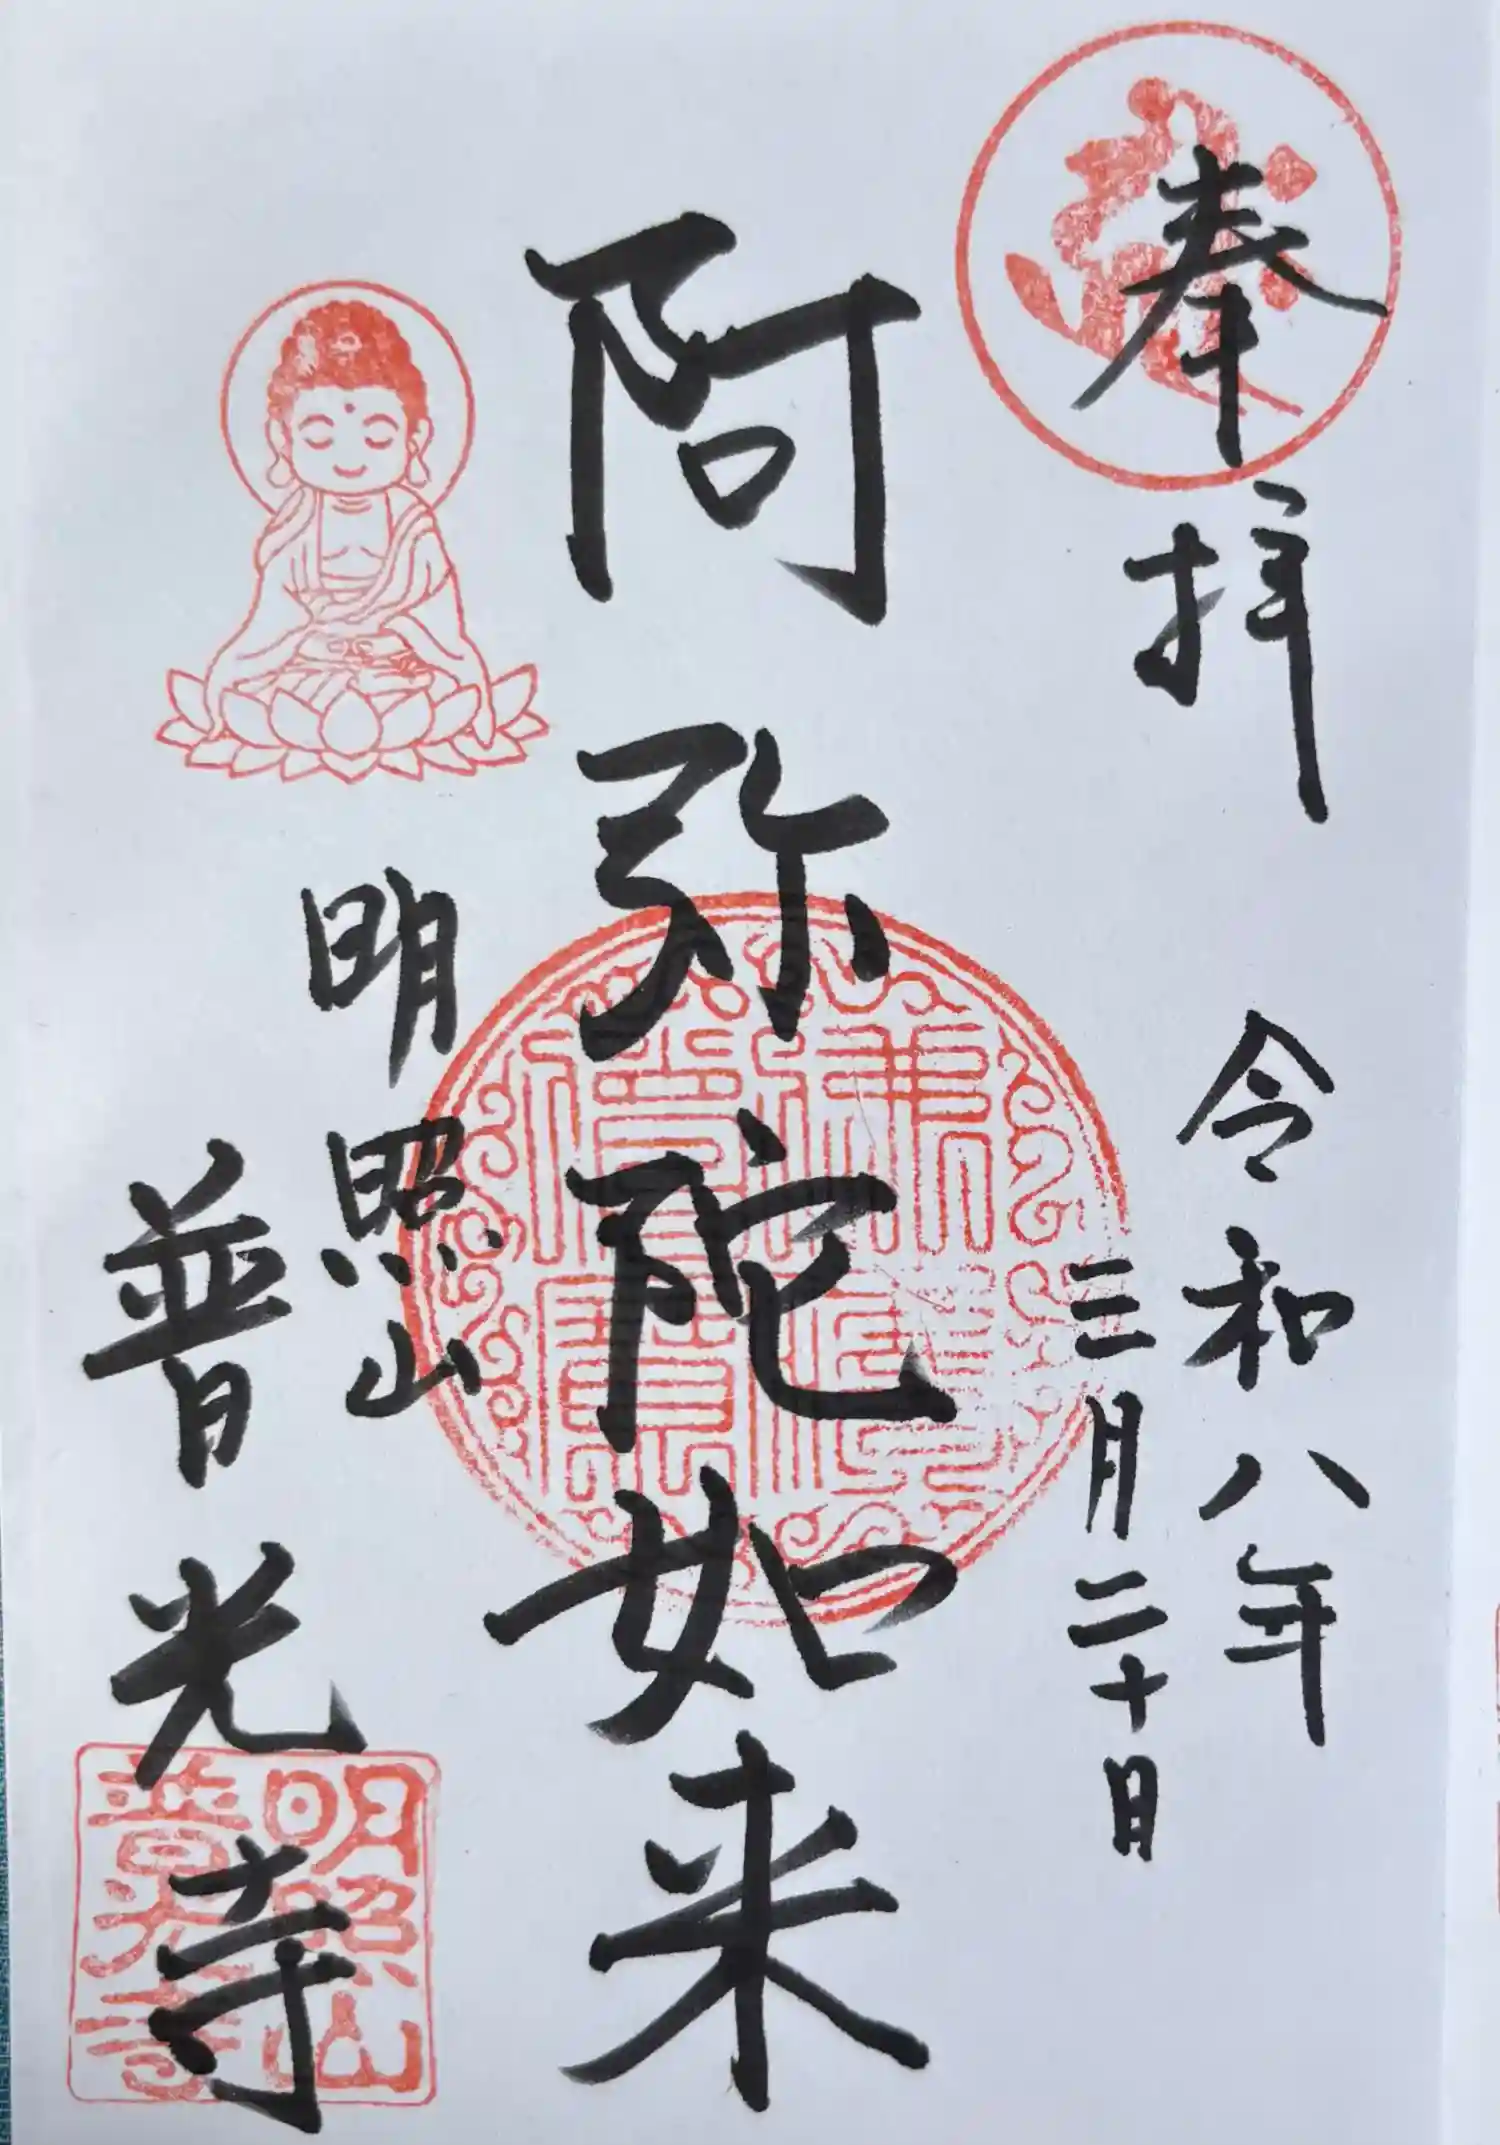 奉拝
令和八年
三月二十日
阿弥陀如来
明照山
普光寺
明照山
普光寺